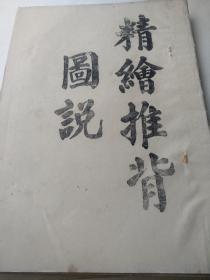 精繪推背
圖說